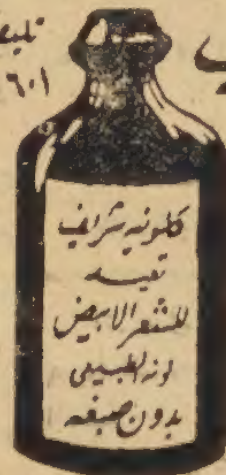 تليف
٦٠١
كلونيه شريف
تعيد
للشعر الابيض
لونه الطبيعى
بدون صبغه